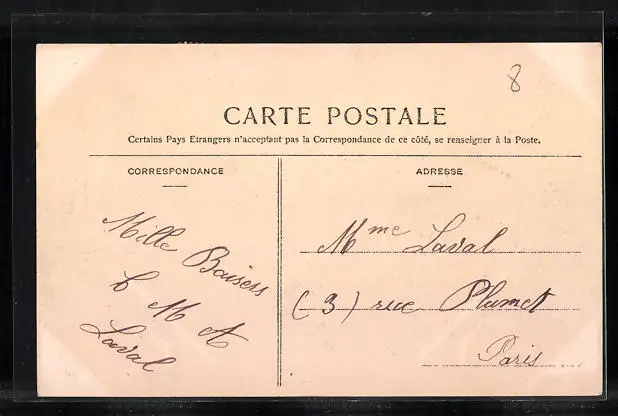 8
CARTE POSTALE
Certains Pays Etrangers n'acceptant pas la Correspondance de ce côté, se renseigner à la Poste.
CORRESPONDANCE
Mille Baisers
L M A
Laval
ADRESSE
Mme Laval
(3) rue Plumet
Paris